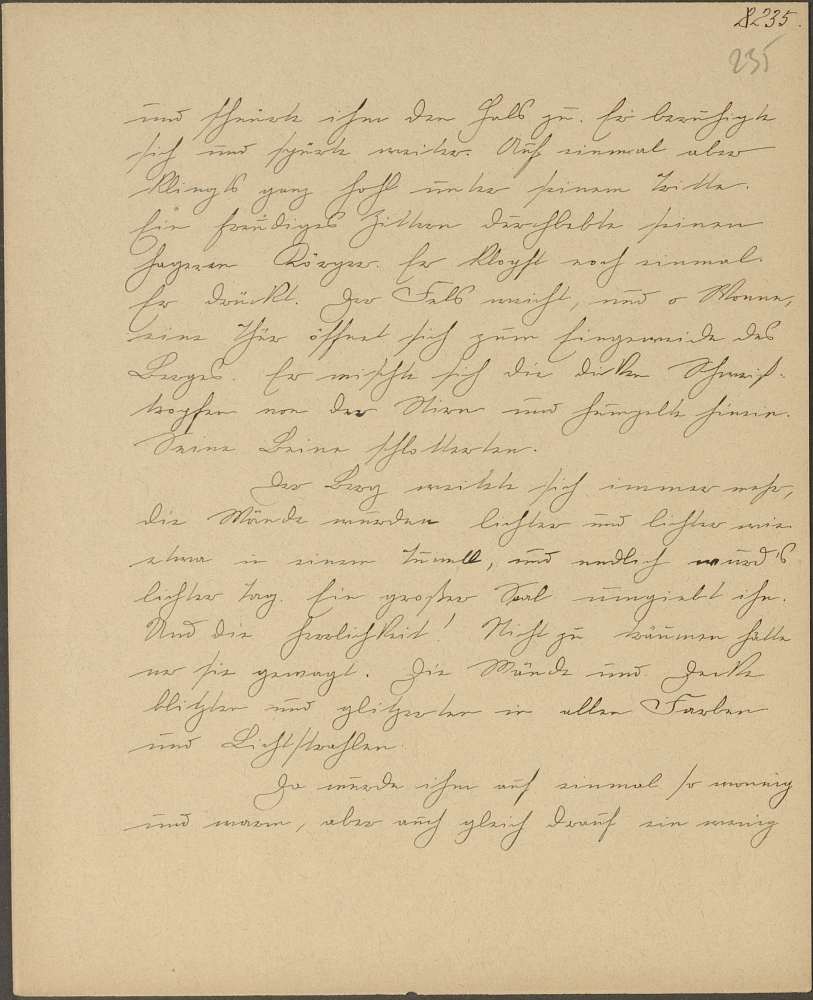 235.
235
und schnürte ihm den Hals zu. Er beruhigte
sich und spürte weiter. Auf einmal aber
klingts ganz hohl unter seinem Tritte.
Ein freudiges Zittern durchbebte seinen
hageren Körper. Er klopft noch einmal.
Er drückt. Der Fels weicht, und o Wonne,
eine Thür öffnet sich zum Eingeweide des
Berges. Er wischte sich die dicken Schweiß-
tropfen von der Stirn und humpelte hinein.
Seine Beine schlotterten.
Der Berg weitete sich immer mehr,
die Wände wurden lichter und lichter wie
etwa in einem Tunell, und endlich wurd's
lichter Tag. Ein großer Saal umgiebt ihn.
Und die Herrlichkeit! Nicht zu träumen hätte
er sie gewagt. Die Wände und Decke
blitzten und glitzerten in allen Farben
und Lichtstrahlen.
Da wurde ihm auf einmal so wonnig
und warm, aber auch gleich drauf ein wenig